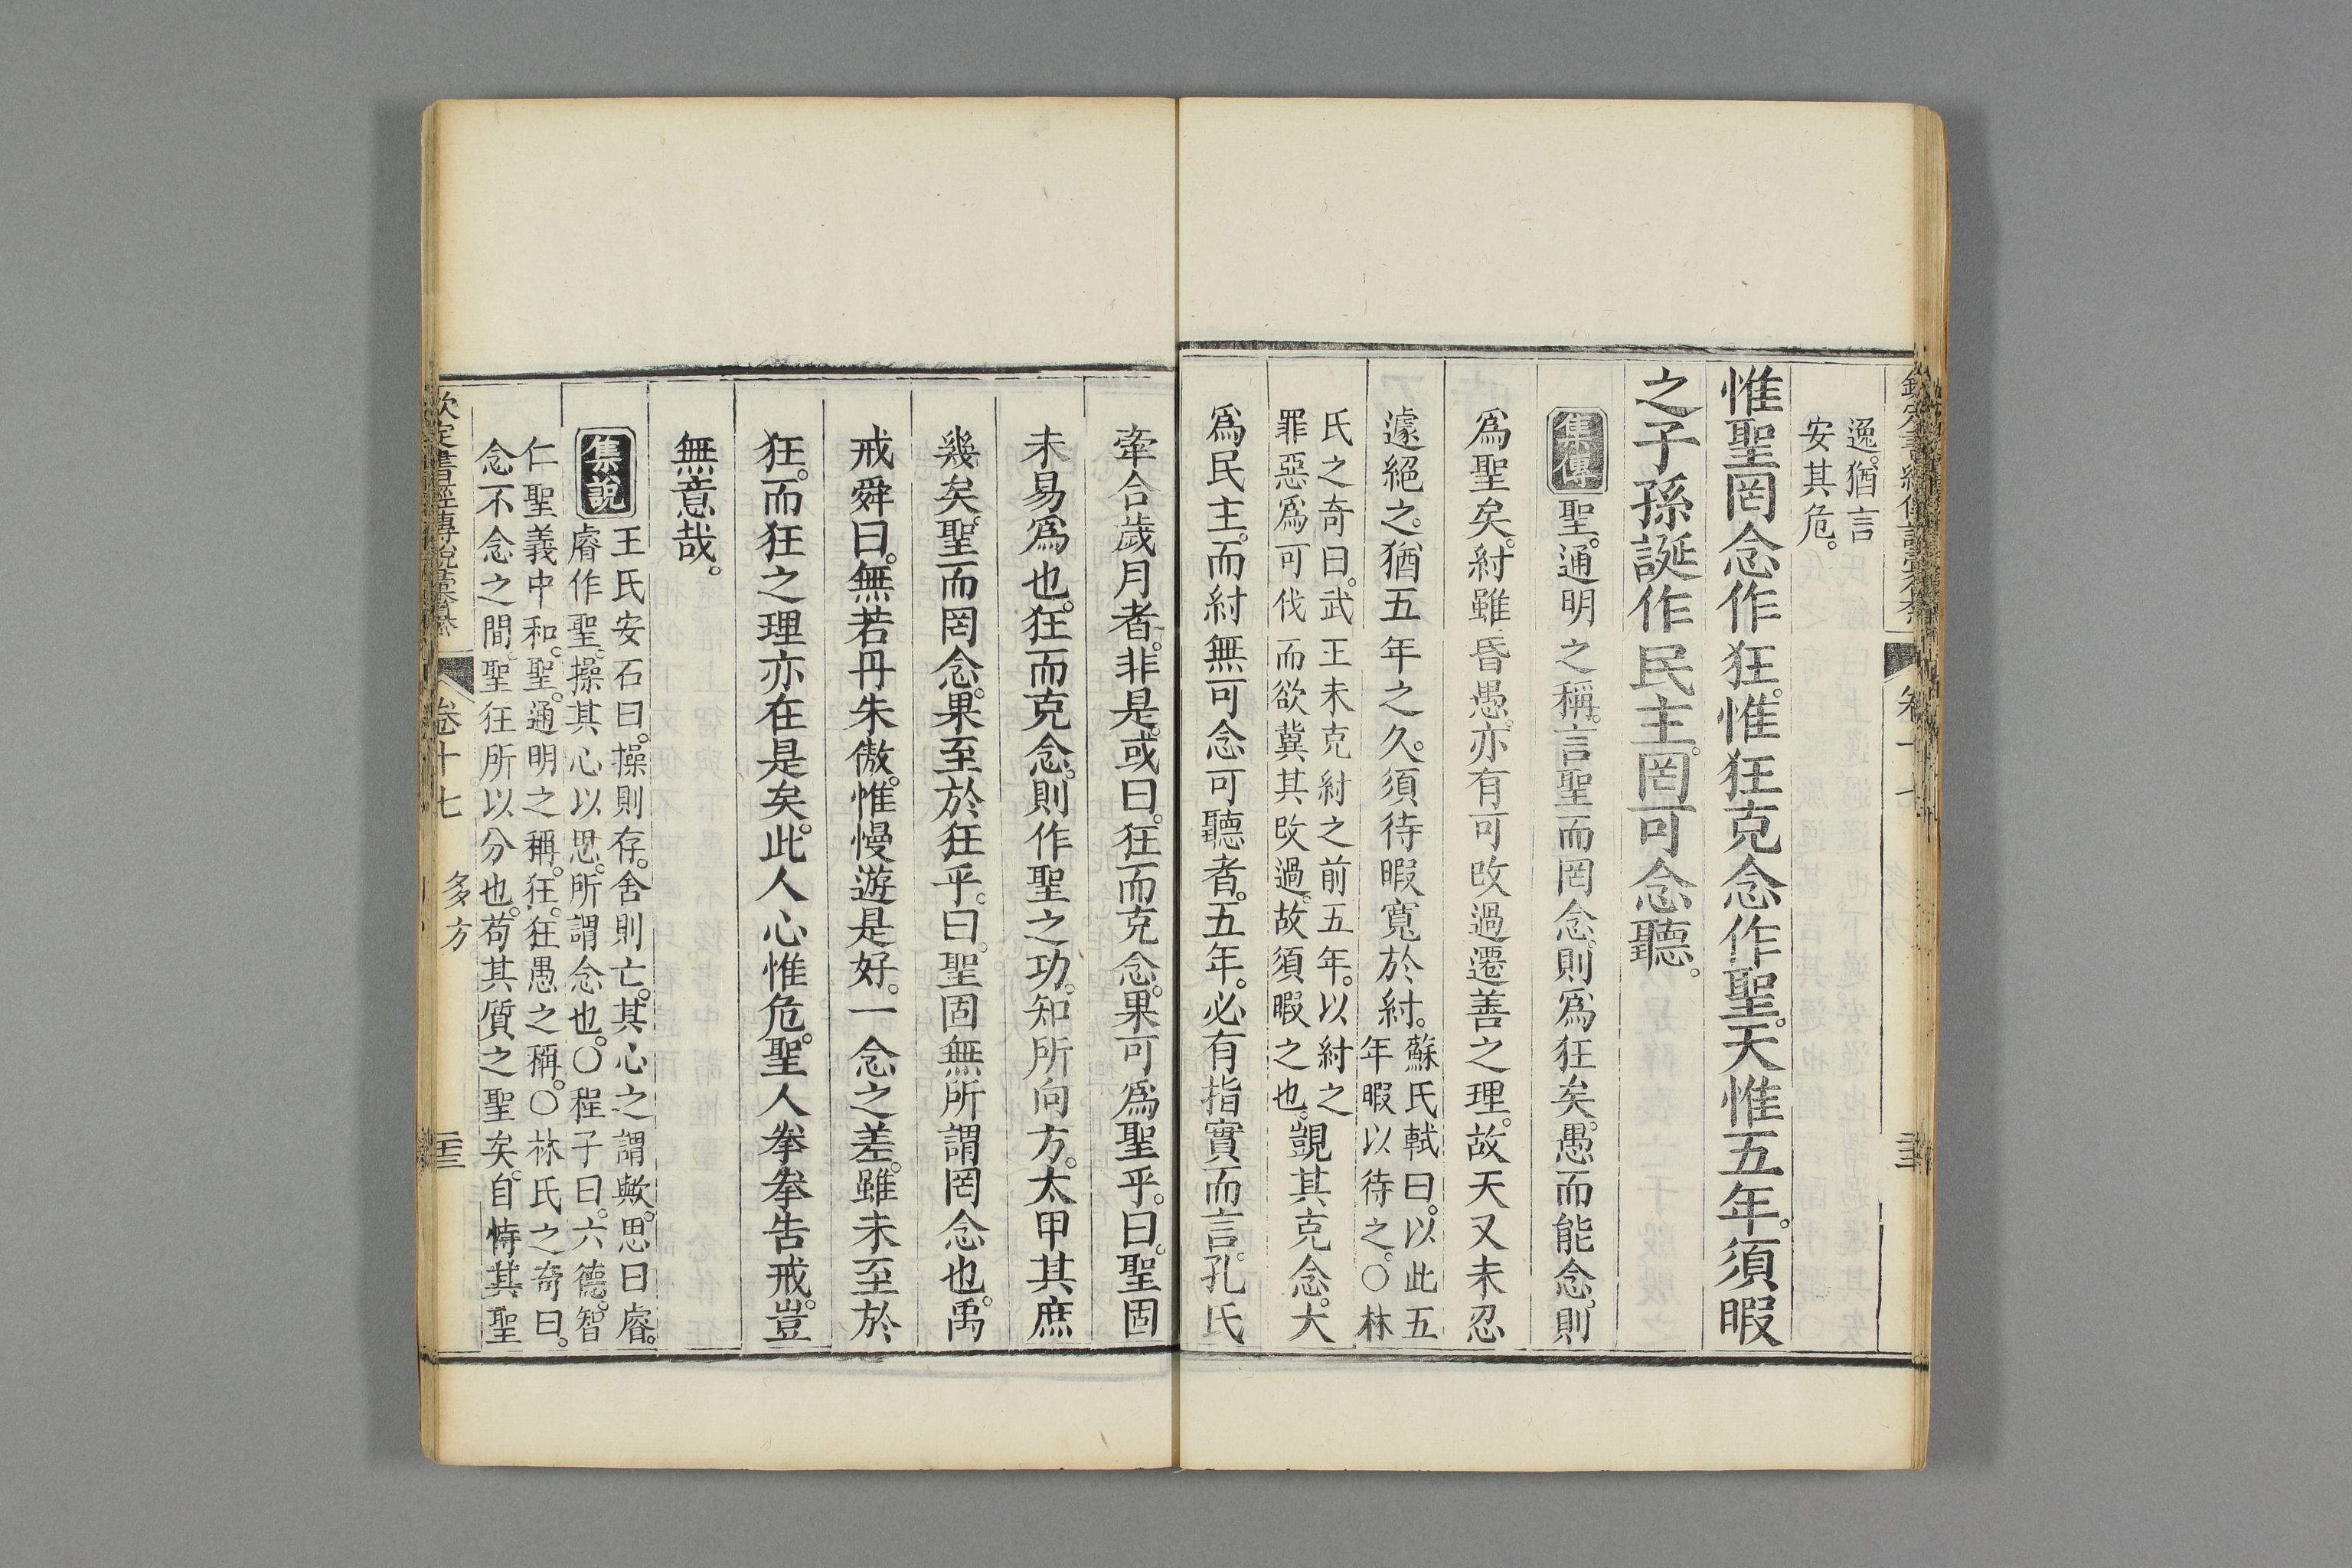 逸。猶言
安其危。
惟聖罔念作狂。惟狂克念作聖。天惟五年。須暇
之子孫誕作民主。罔可念聽。
集傳
聖。通明之稱。言聖而罔念。則爲狂矣。愚而能念。則
爲聖矣。紂雖昏愚。亦有可改過遷善之理。故天又未忍
遽絕之。猶五年之久。須待暇寬於紂。
蘇氏軾曰。以此五
年暇以待之。〇林
氏之奇曰。武王未克紂之前五年。以紂之
罪惡爲可伐而欲冀其改過。故須暇之也。
覬其克念。大
爲民主。而紂無可念可聽者。五年。必有指實而言。孔氏
牽合歲月者。非是。或曰。狂而克念。果可爲聖乎。曰。聖固
未易爲也。狂而克念。則作聖之功。知所向方。太甲其庶
幾矣。聖而罔念。果至於狂乎。曰。聖固無所謂罔念也。禹
戒舜曰。無若丹朱傲。惟慢遊是好。一念之差。雖未至於
狂。而狂之理亦在是矣。此人心惟危。聖人拳拳告戒。豈
無意哉。
集說
王氏安石曰。操則存。舍則亡。其心之謂歟。思曰睿。
睿作聖。操其心以思。所謂念也。〇程子曰。六德。智
仁聖義中和。聖。通明之稱。狂。狂愚之稱。〇林氏之奇曰。
念不念之間。聖狂所以分也。苟其質之聖矣。自恃其聖
欽定書經傳說彙纂 卷十七 多方 二十三